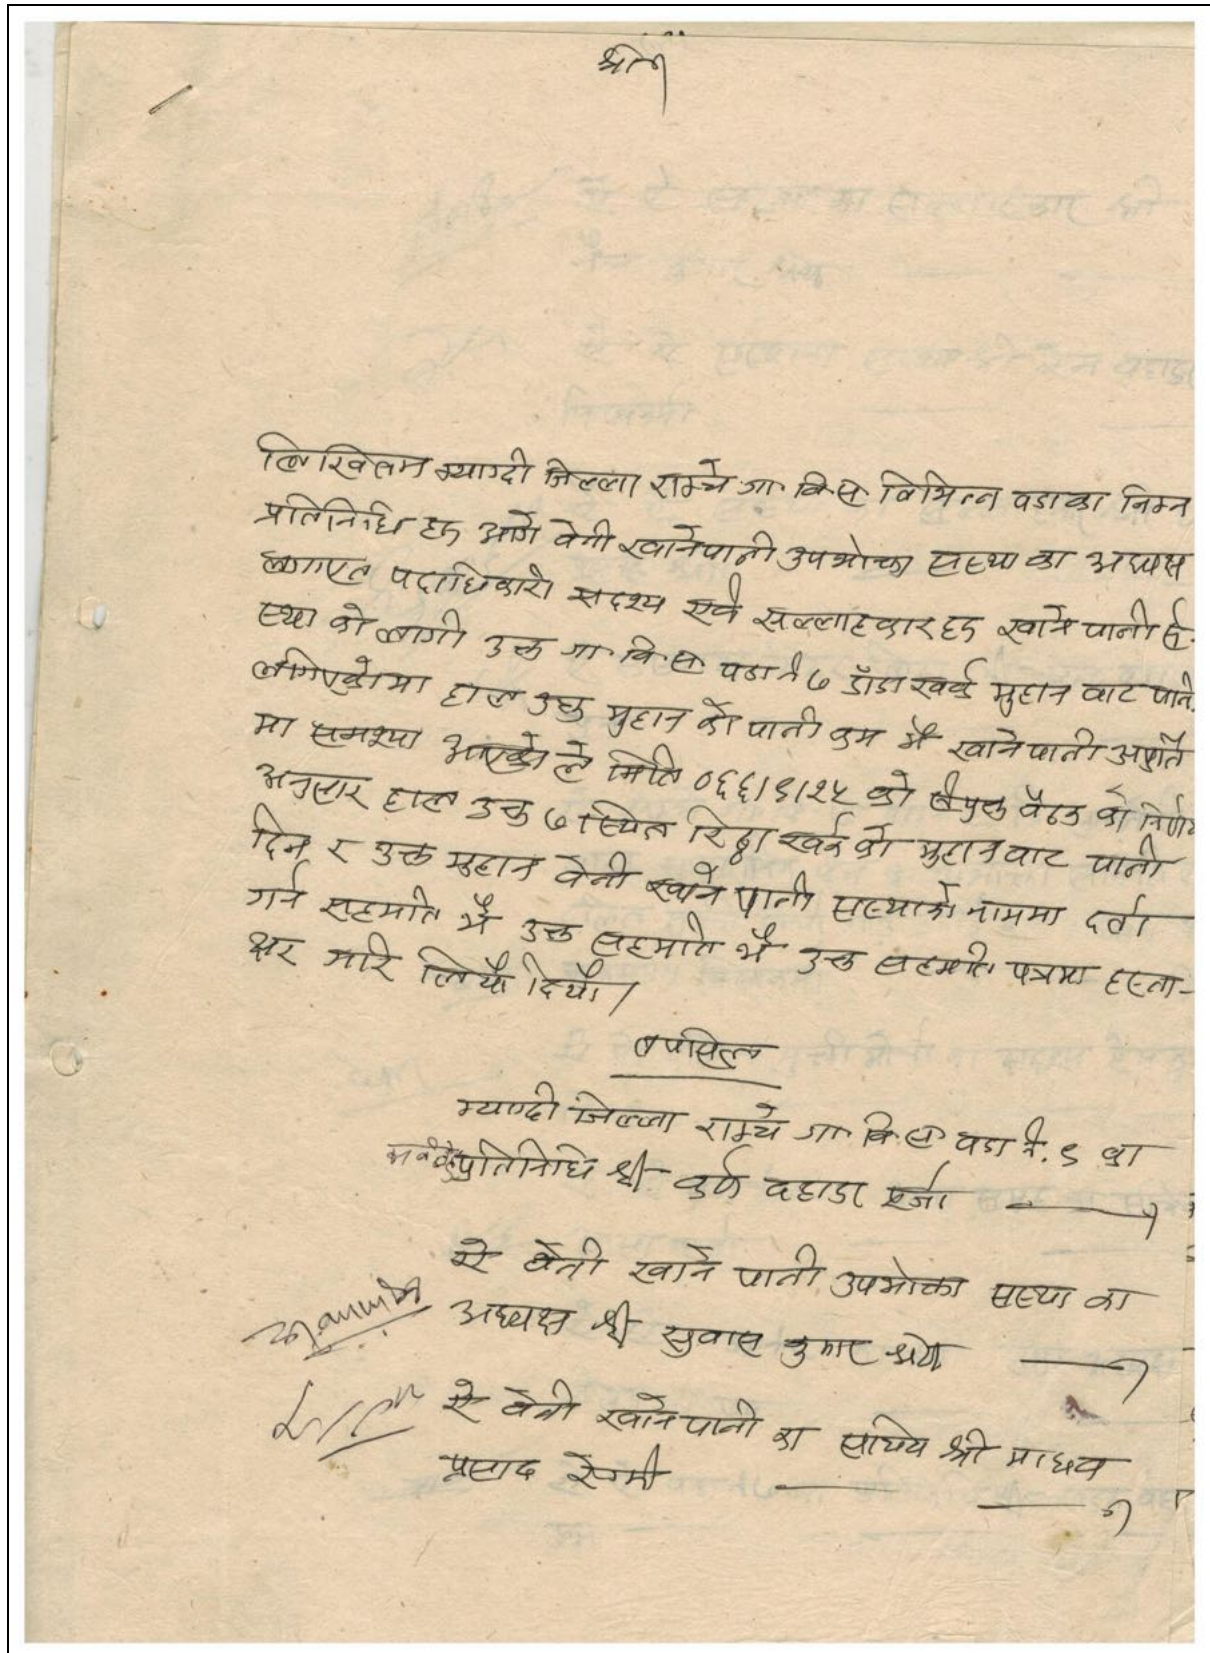 श्री१
लिखितम म्याग्दी जिल्ला राम्चे गा. वि. स. विभिन्न वडाका निम्न
प्रतिनिधि हरु आगे वेनी खानेपानी उपभोक्ता सस्था का अध्यक्ष
लगाएत पदाधिकारी सदश्य एवं सल्लाहकार हरु खाने पानी सं-
स्था को लागी उक्त गा. वि. स. वडा नं ७ डाँडा खर्क मुहान वाट पानी
लगिएकोमा हाल उक्त मुहान को पानी कम भै खानेपानी आपुर्ति
मा समश्या आएकोले मिति ०६६।९।२५ को संयुक्त वैठक को निर्णय
अनुसार हाल उक्त ७ स्थित रिठ्ठा खर्क को मुहान वाट पानी
दिन र उक्त मुहान वेनी खाने पानी सस्थाको नाममा दर्ता
गर्न सहमति भै उक्त सहमति भै उक्त सहमति पत्रमा हस्ता-
क्षर गरि लियौ दियौ।
तपसिल
म्याग्दी जिल्ला राम्चे गा. वि. स. वडा नं. ९ का
प्रतिनिधि श्री कर्ण वहादुर पुर्जा —१
ऐ वेनी खाने पानी उपभोक्ता सस्था का
अध्यक्ष श्री सुवास कुमार —१
ऐ वेनी खाने पानी का सचिव श्री माधव
प्रसाद रेग्मी — —१